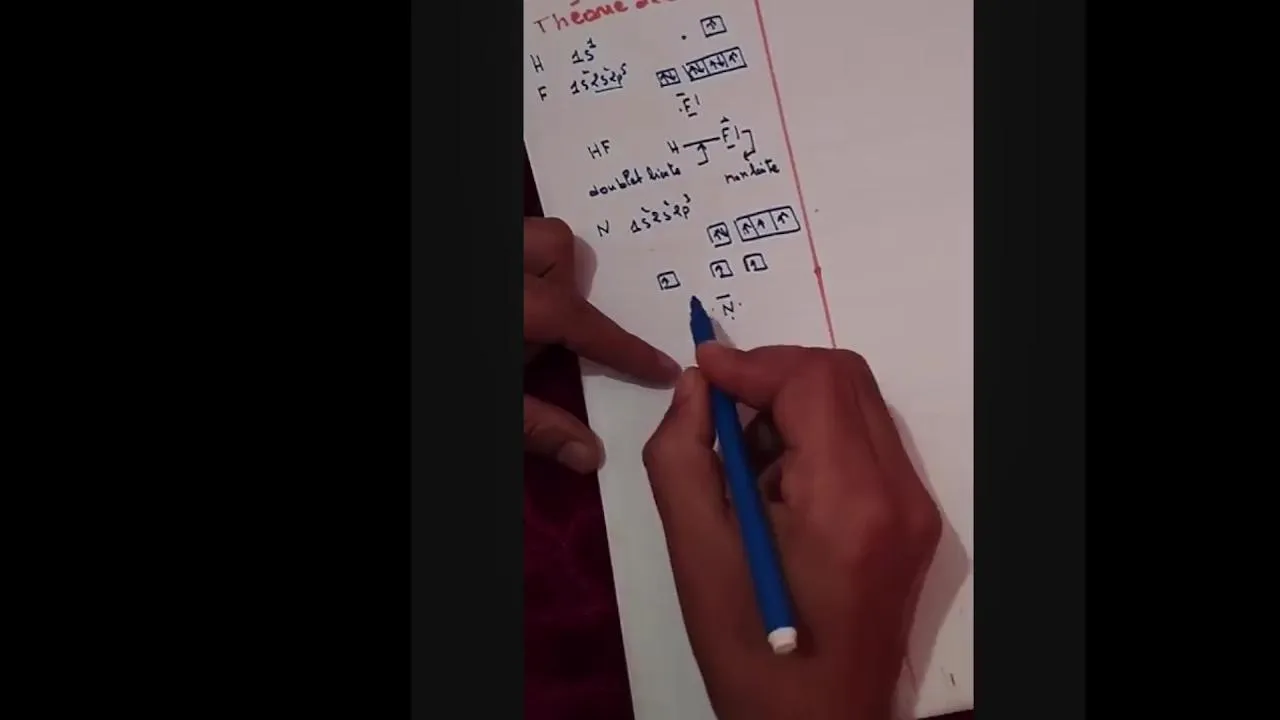 Théorie de
H 1s¹ ↑
F 1s²2s²2p⁵ ↑↓ ↑↓ ↑↓ ↑
F
HF H — F
doublet liante non liante
N 1s²2s²2p³ ↑↓ ↑ ↑ ↑
↑ ↑ ↑
N